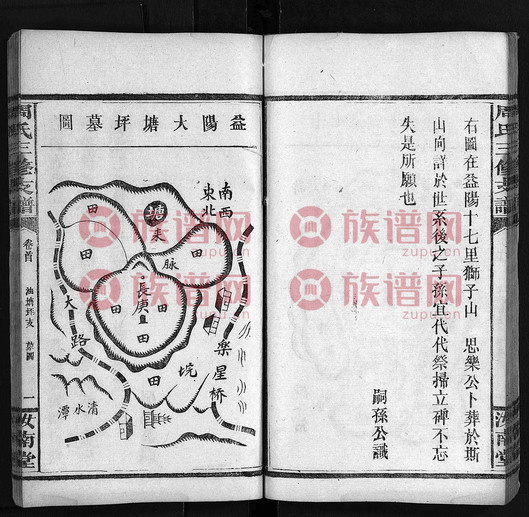 周氏三修支譜
右圖在益陽十七里獅子山　思樂公卜葬於斯
山向詳於世系後之子孫宜代代祭掃立碑不忘
失是所願也
嗣孫公識
汝南堂
益陽大塘坪墓圖
南西
東北
塘
來
脉
田
田
田
長庚
田
田
田
田
大
路
桥星樂
坑
清水潭
周氏三修支譜
卷首
墓圖
一
汝南堂
族谱网
zupu.cn
族谱网
zupu.cn